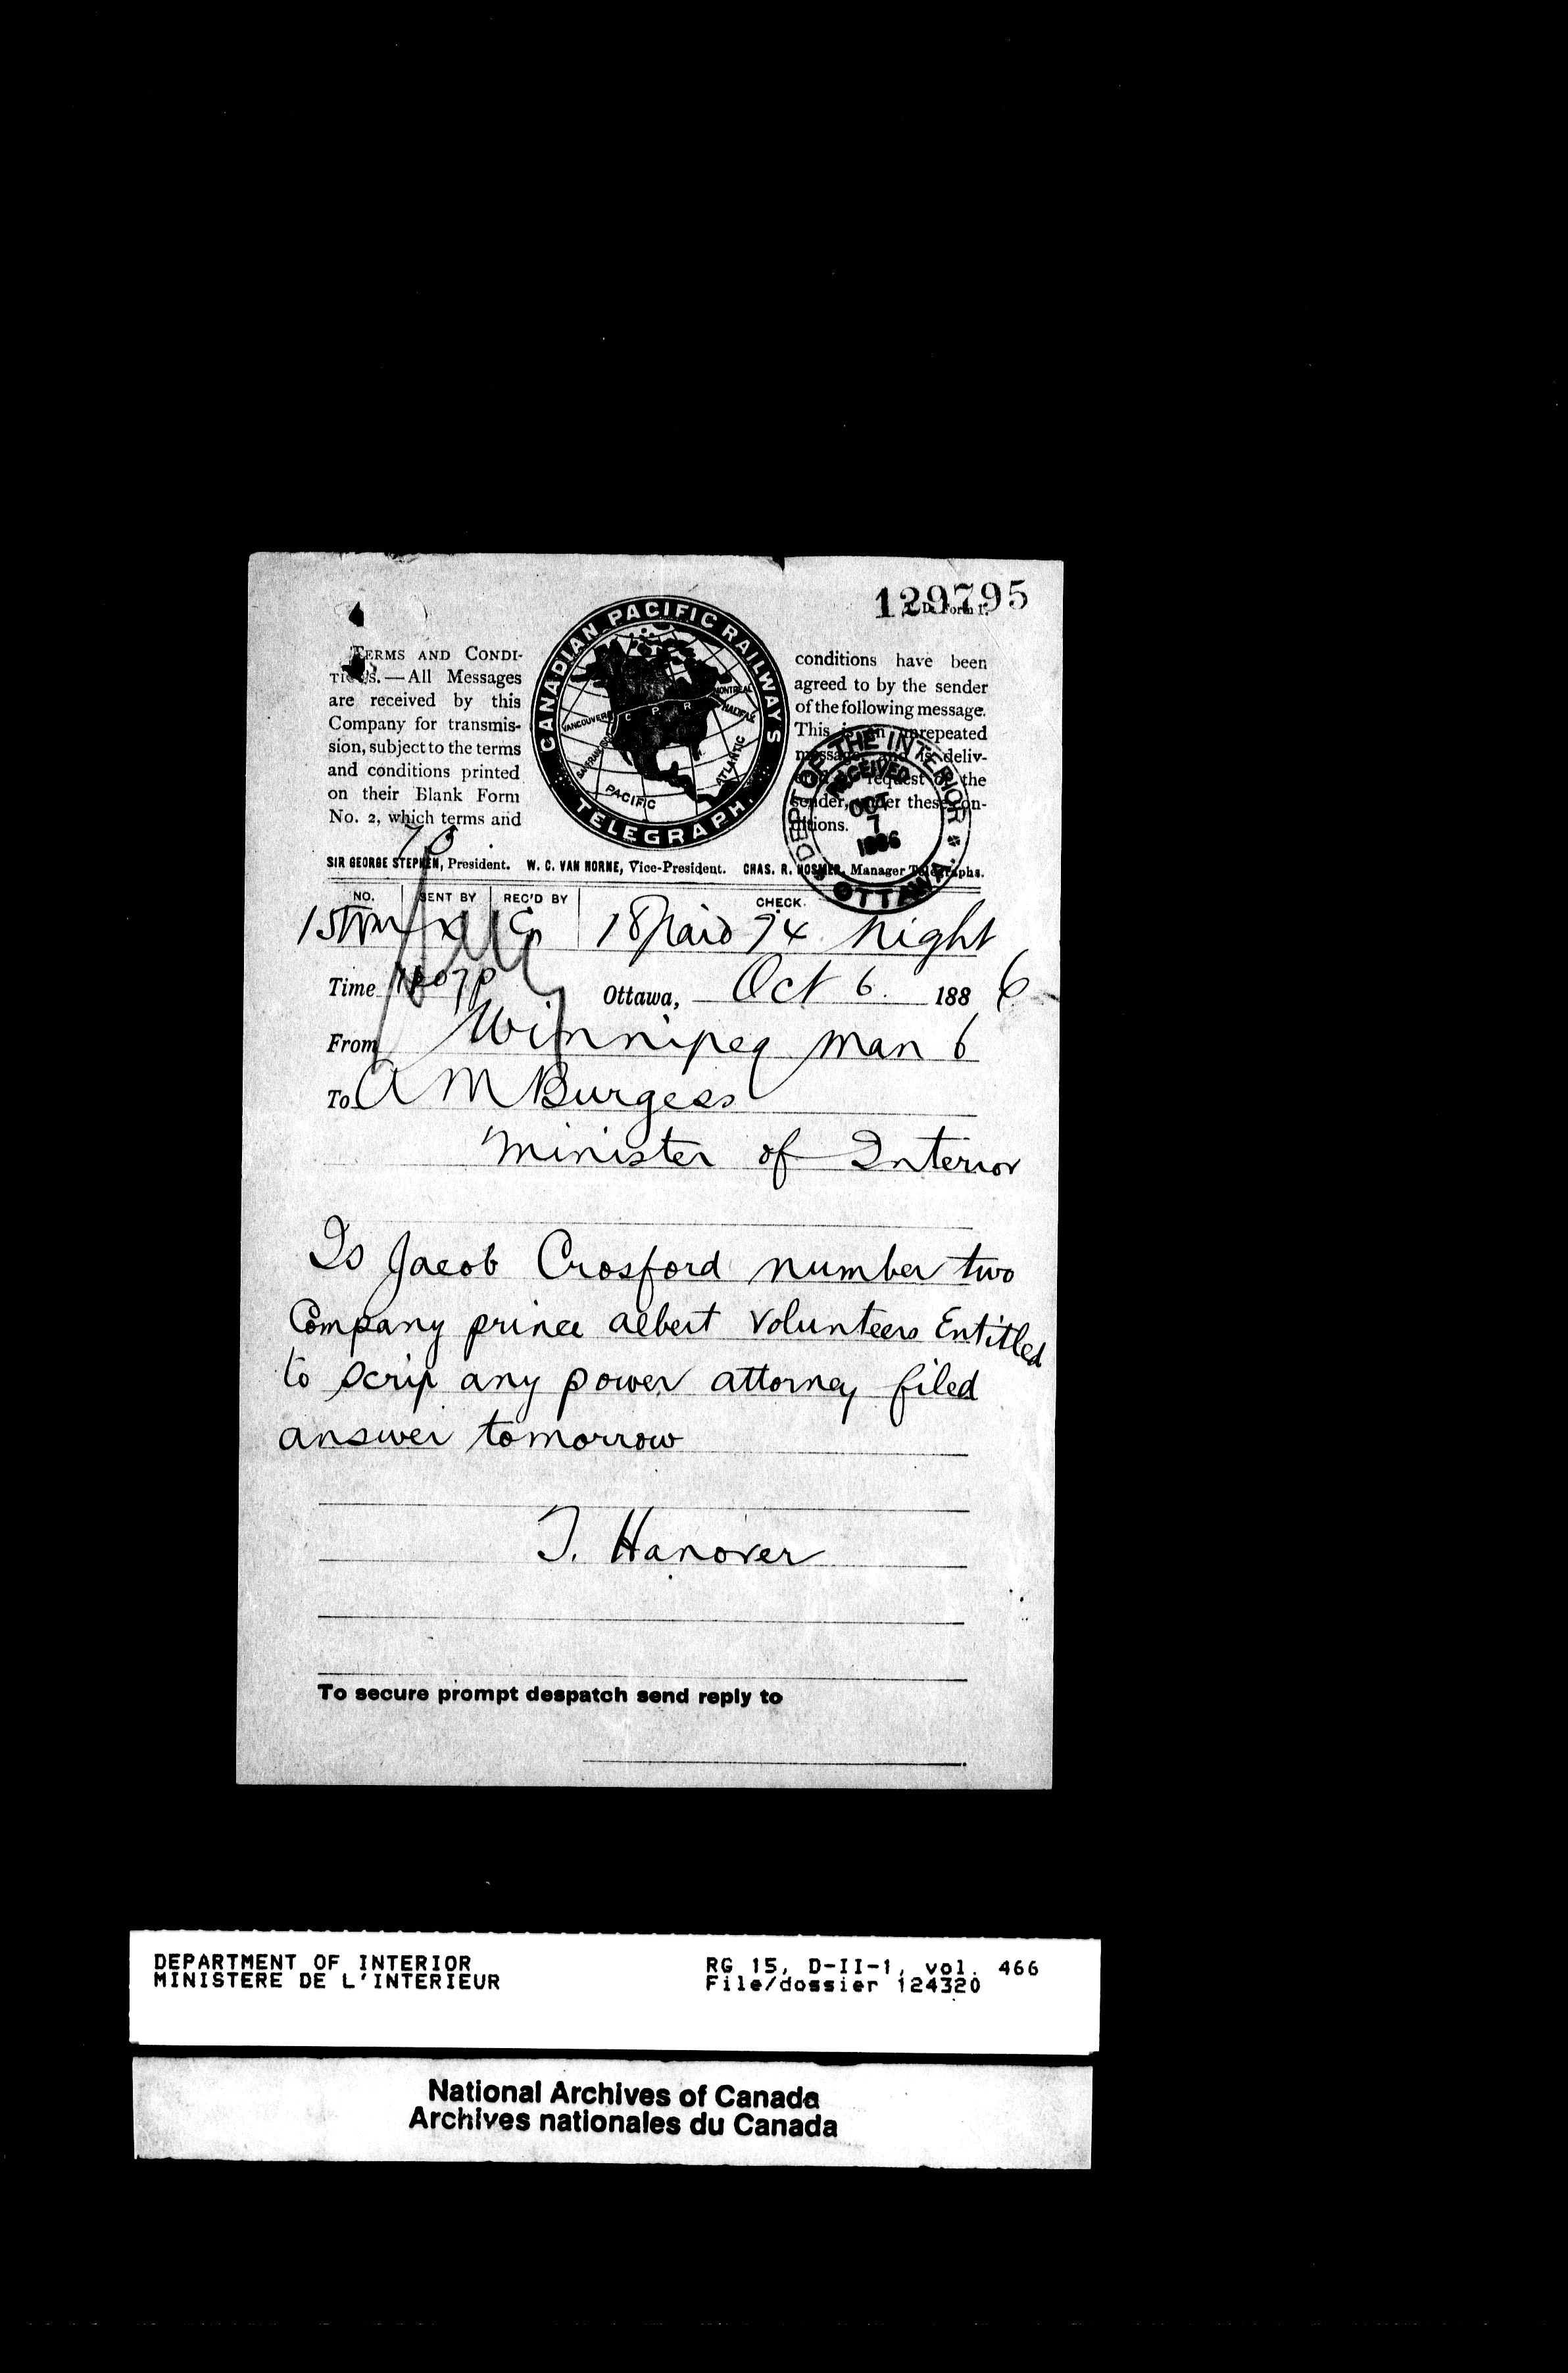 129795
T. D. Form 1.
TERMS AND CONDI-
TIONS.—All Messages
are received by this
Company for transmis-
sion, subject to the terms
and conditions printed
on their Blank Form
No. 2, which terms and
CANADIAN PACIFIC RAILWAY'S
TELEGRAPH.
VANCOUVER
C. P. R.
MONTREAL
HALIFAX
SAN FRANCISCO
ATLANTIC
PACIFIC
conditions have been
agreed to by the sender
of the following message.
This is an unrepeated
message and is deliv-
ered by request of the
sender, under these con-
ditions.
DEPT OF THE INTERIOR
RECEIVED
OCT
7
1886
OTTAWA
SIR GEORGE STEPHEN, President. W. C. VAN HORNE, Vice-President. CHAS. R. HOSMER, Manager Telegraphs.
NO. SENT BY REC'D BY CHECK.
18 Paid 74 Night
Time Ottawa, Oct 6. 1886
From Winnipeg Man 6
To A M Burgess
Minister of Interior
Is Jacob Crosford number two
Company prince albert Volunteers Entitled
to scrip any power attorney filed
answer tomorrow
T. Hanover
To secure prompt despatch send reply to
DEPARTMENT OF INTERIOR RG 15, D-II-1, vol. 466
MINISTERE DE L'INTERIEUR File/dossier 124320
National Archives of Canada
Archives nationales du Canada